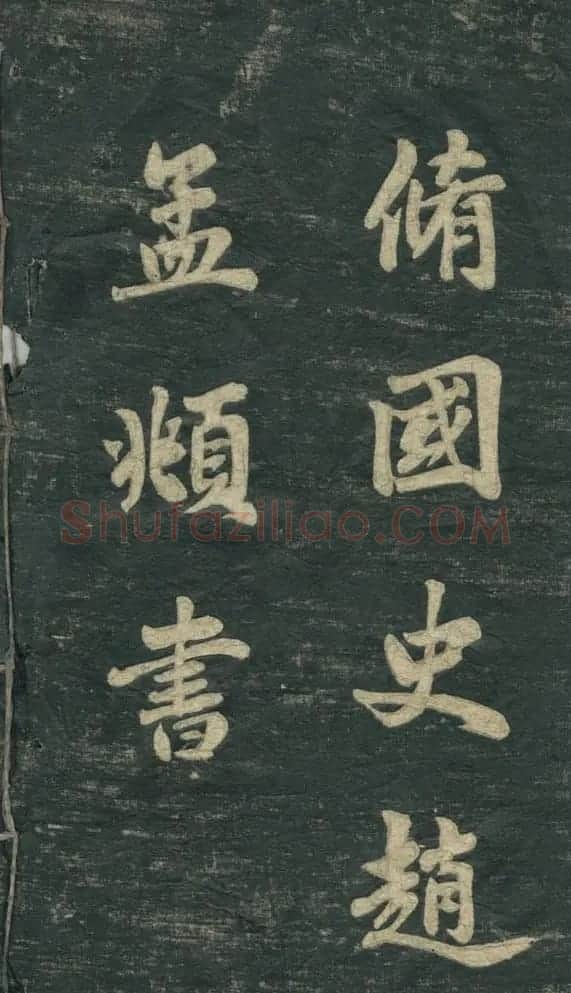 脩國史趙
孟頫書
Shufaziliao.COM